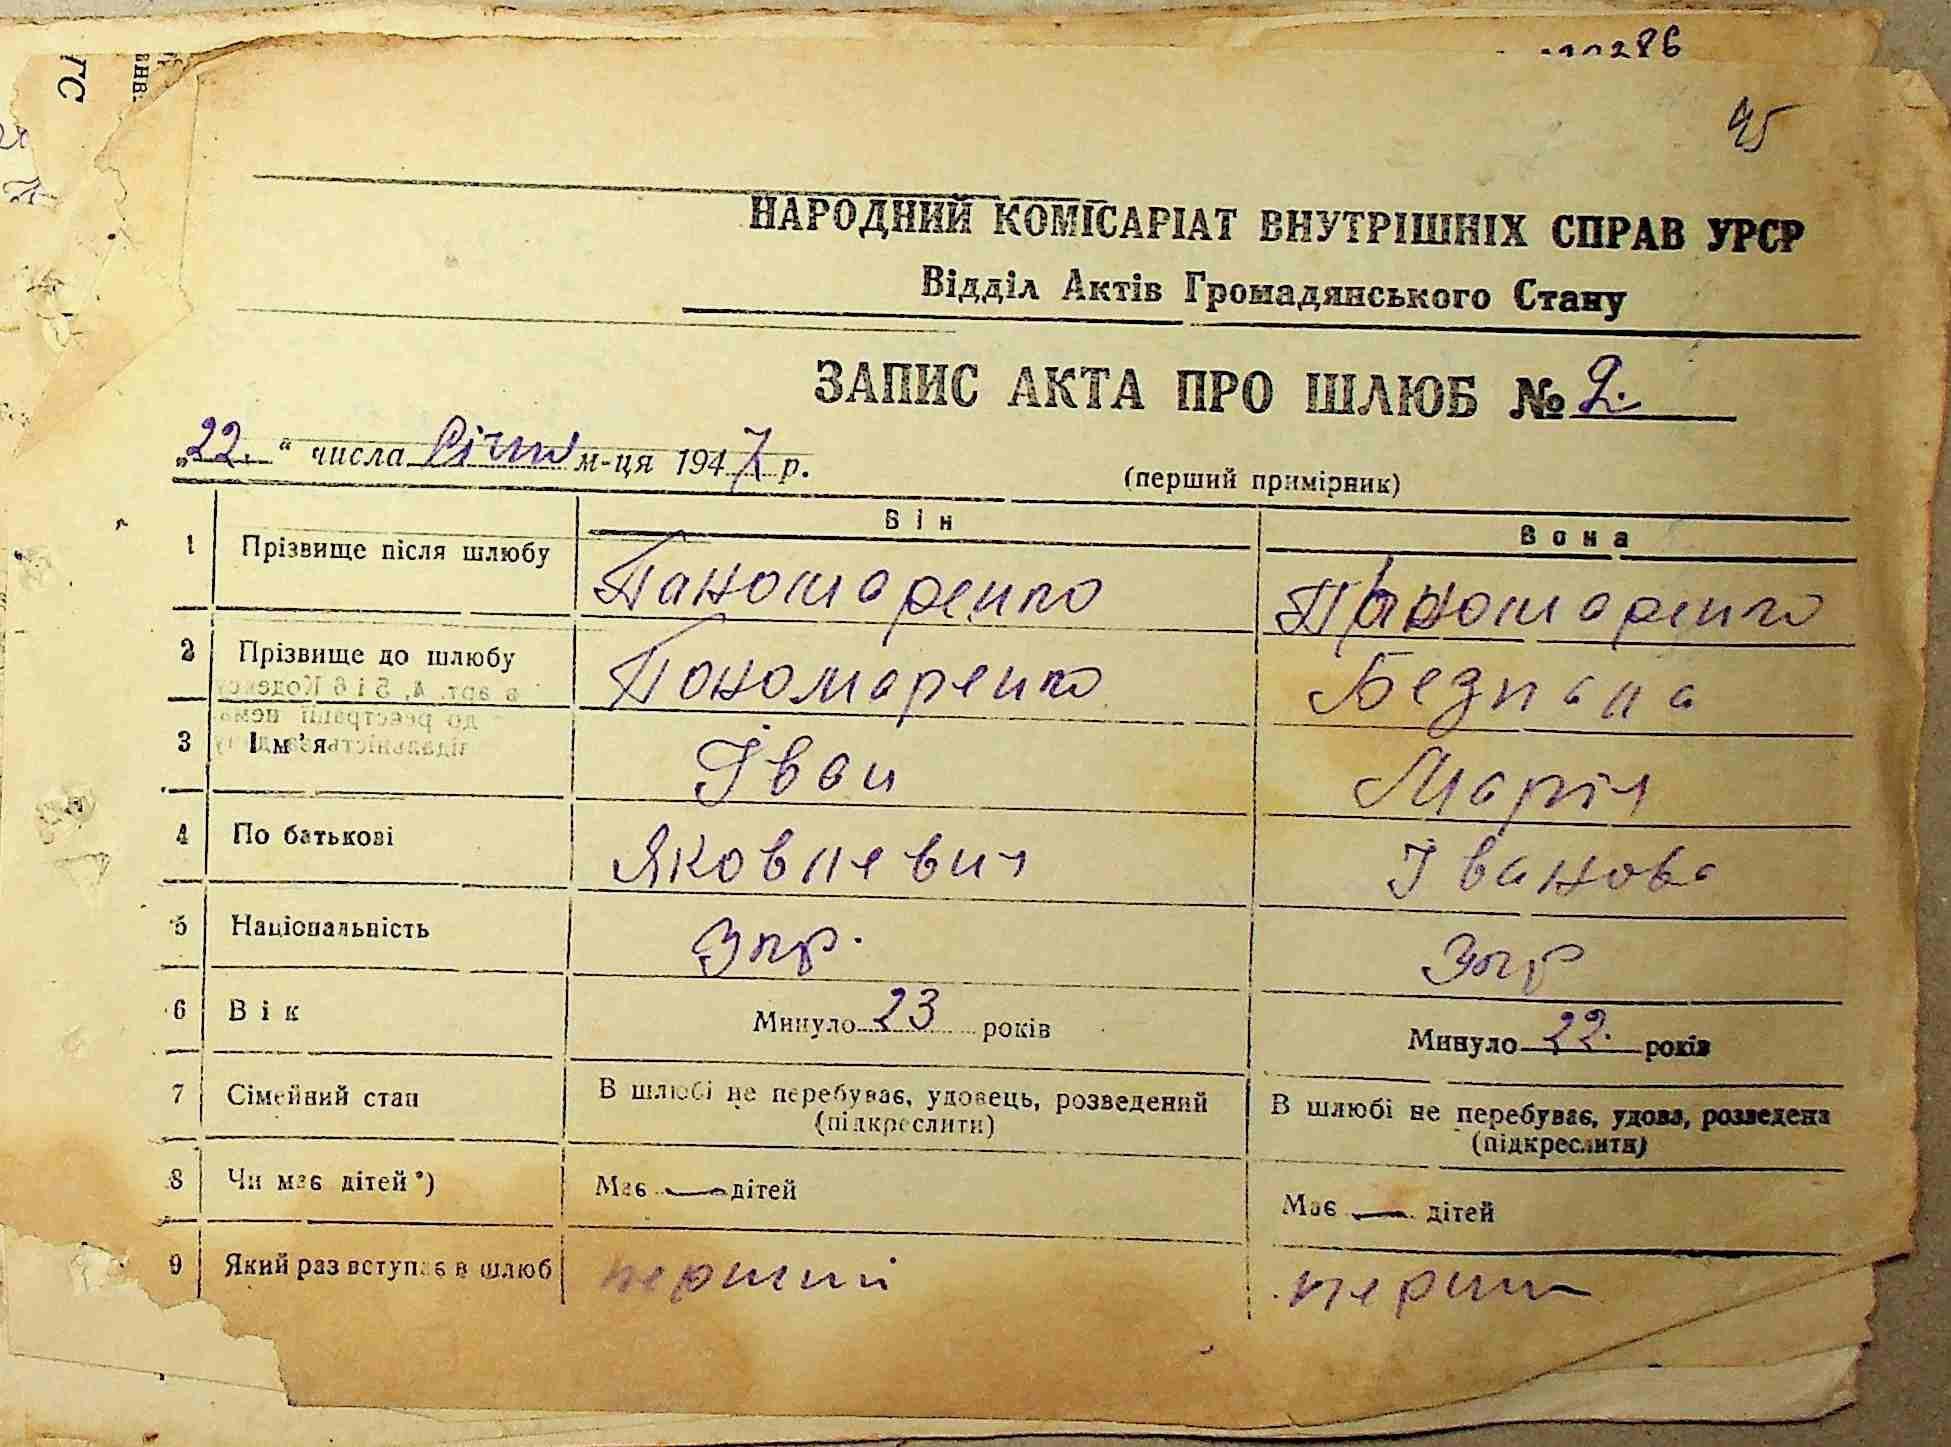 286
45
НАРОДНИЙ КОМІСАРІАТ ВНУТРІШНІХ СПРАВ УРСР
Відділ Актів Громадянського Стану
ЗАПИС АКТА ПРО ШЛЮБ № 2.
„22." числа Січня м-ця 1947 р.
(перший примірник)
Він Вона
1 Прізвище після шлюбу Паномаренко Пономаренко
2 Прізвище до шлюбу Пономаренко Безпала
3 Ім'я Іван Марія
4 По батькові Яковлевич Іванова
5 Національність Укр. Укр
6 Вік Минуло 23 років Минуло 22. років
7 Сімейний стан В шлюбі не перебуває, удовець, розведений (підкреслити) В шлюбі не перебуває, удова, розведена (підкреслити)
8 Чи має дітей*) Має — дітей Має — дітей
9 Який раз вступає в шлюб перший перши